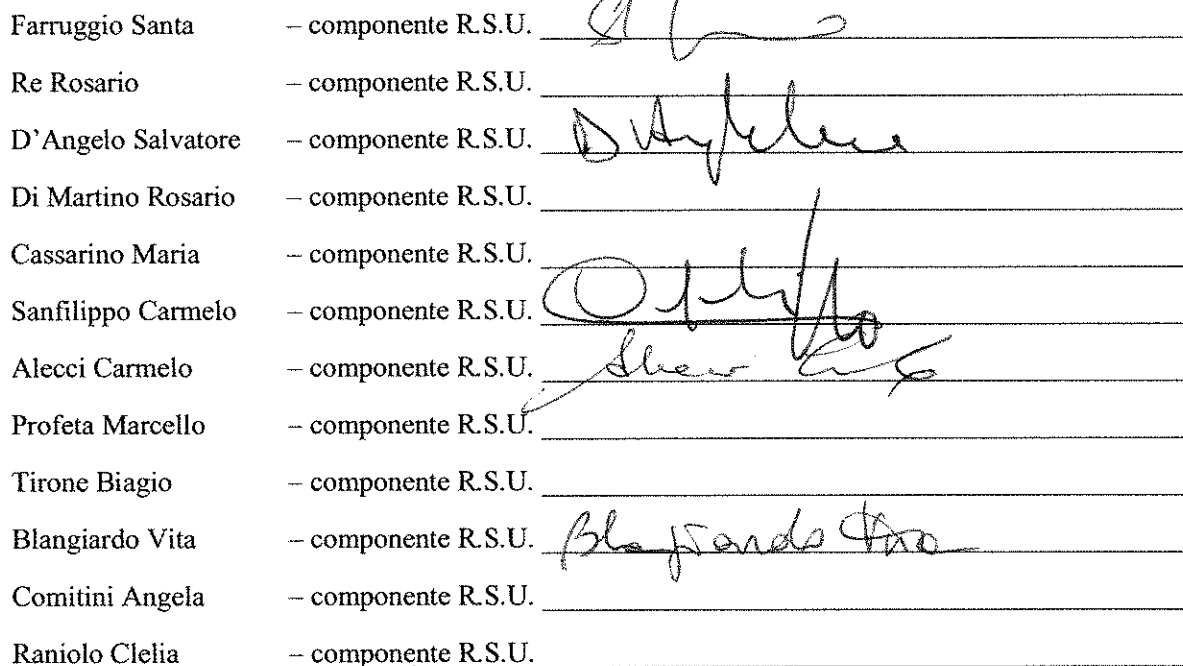 Farruggio Santa – componente R.S.U.
Re Rosario – componente R.S.U.
D'Angelo Salvatore – componente R.S.U. D'Angelo
Di Martino Rosario – componente R.S.U.
Cassarino Maria – componente R.S.U.
Sanfilippo Carmelo – componente R.S.U.
Alecci Carmelo – componente R.S.U.
Profeta Marcello – componente R.S.U.
Tirone Biagio – componente R.S.U.
Blangiardo Vita – componente R.S.U. Blangiardo Vita
Comitini Angela – componente R.S.U.
Raniolo Clelia – componente R.S.U.